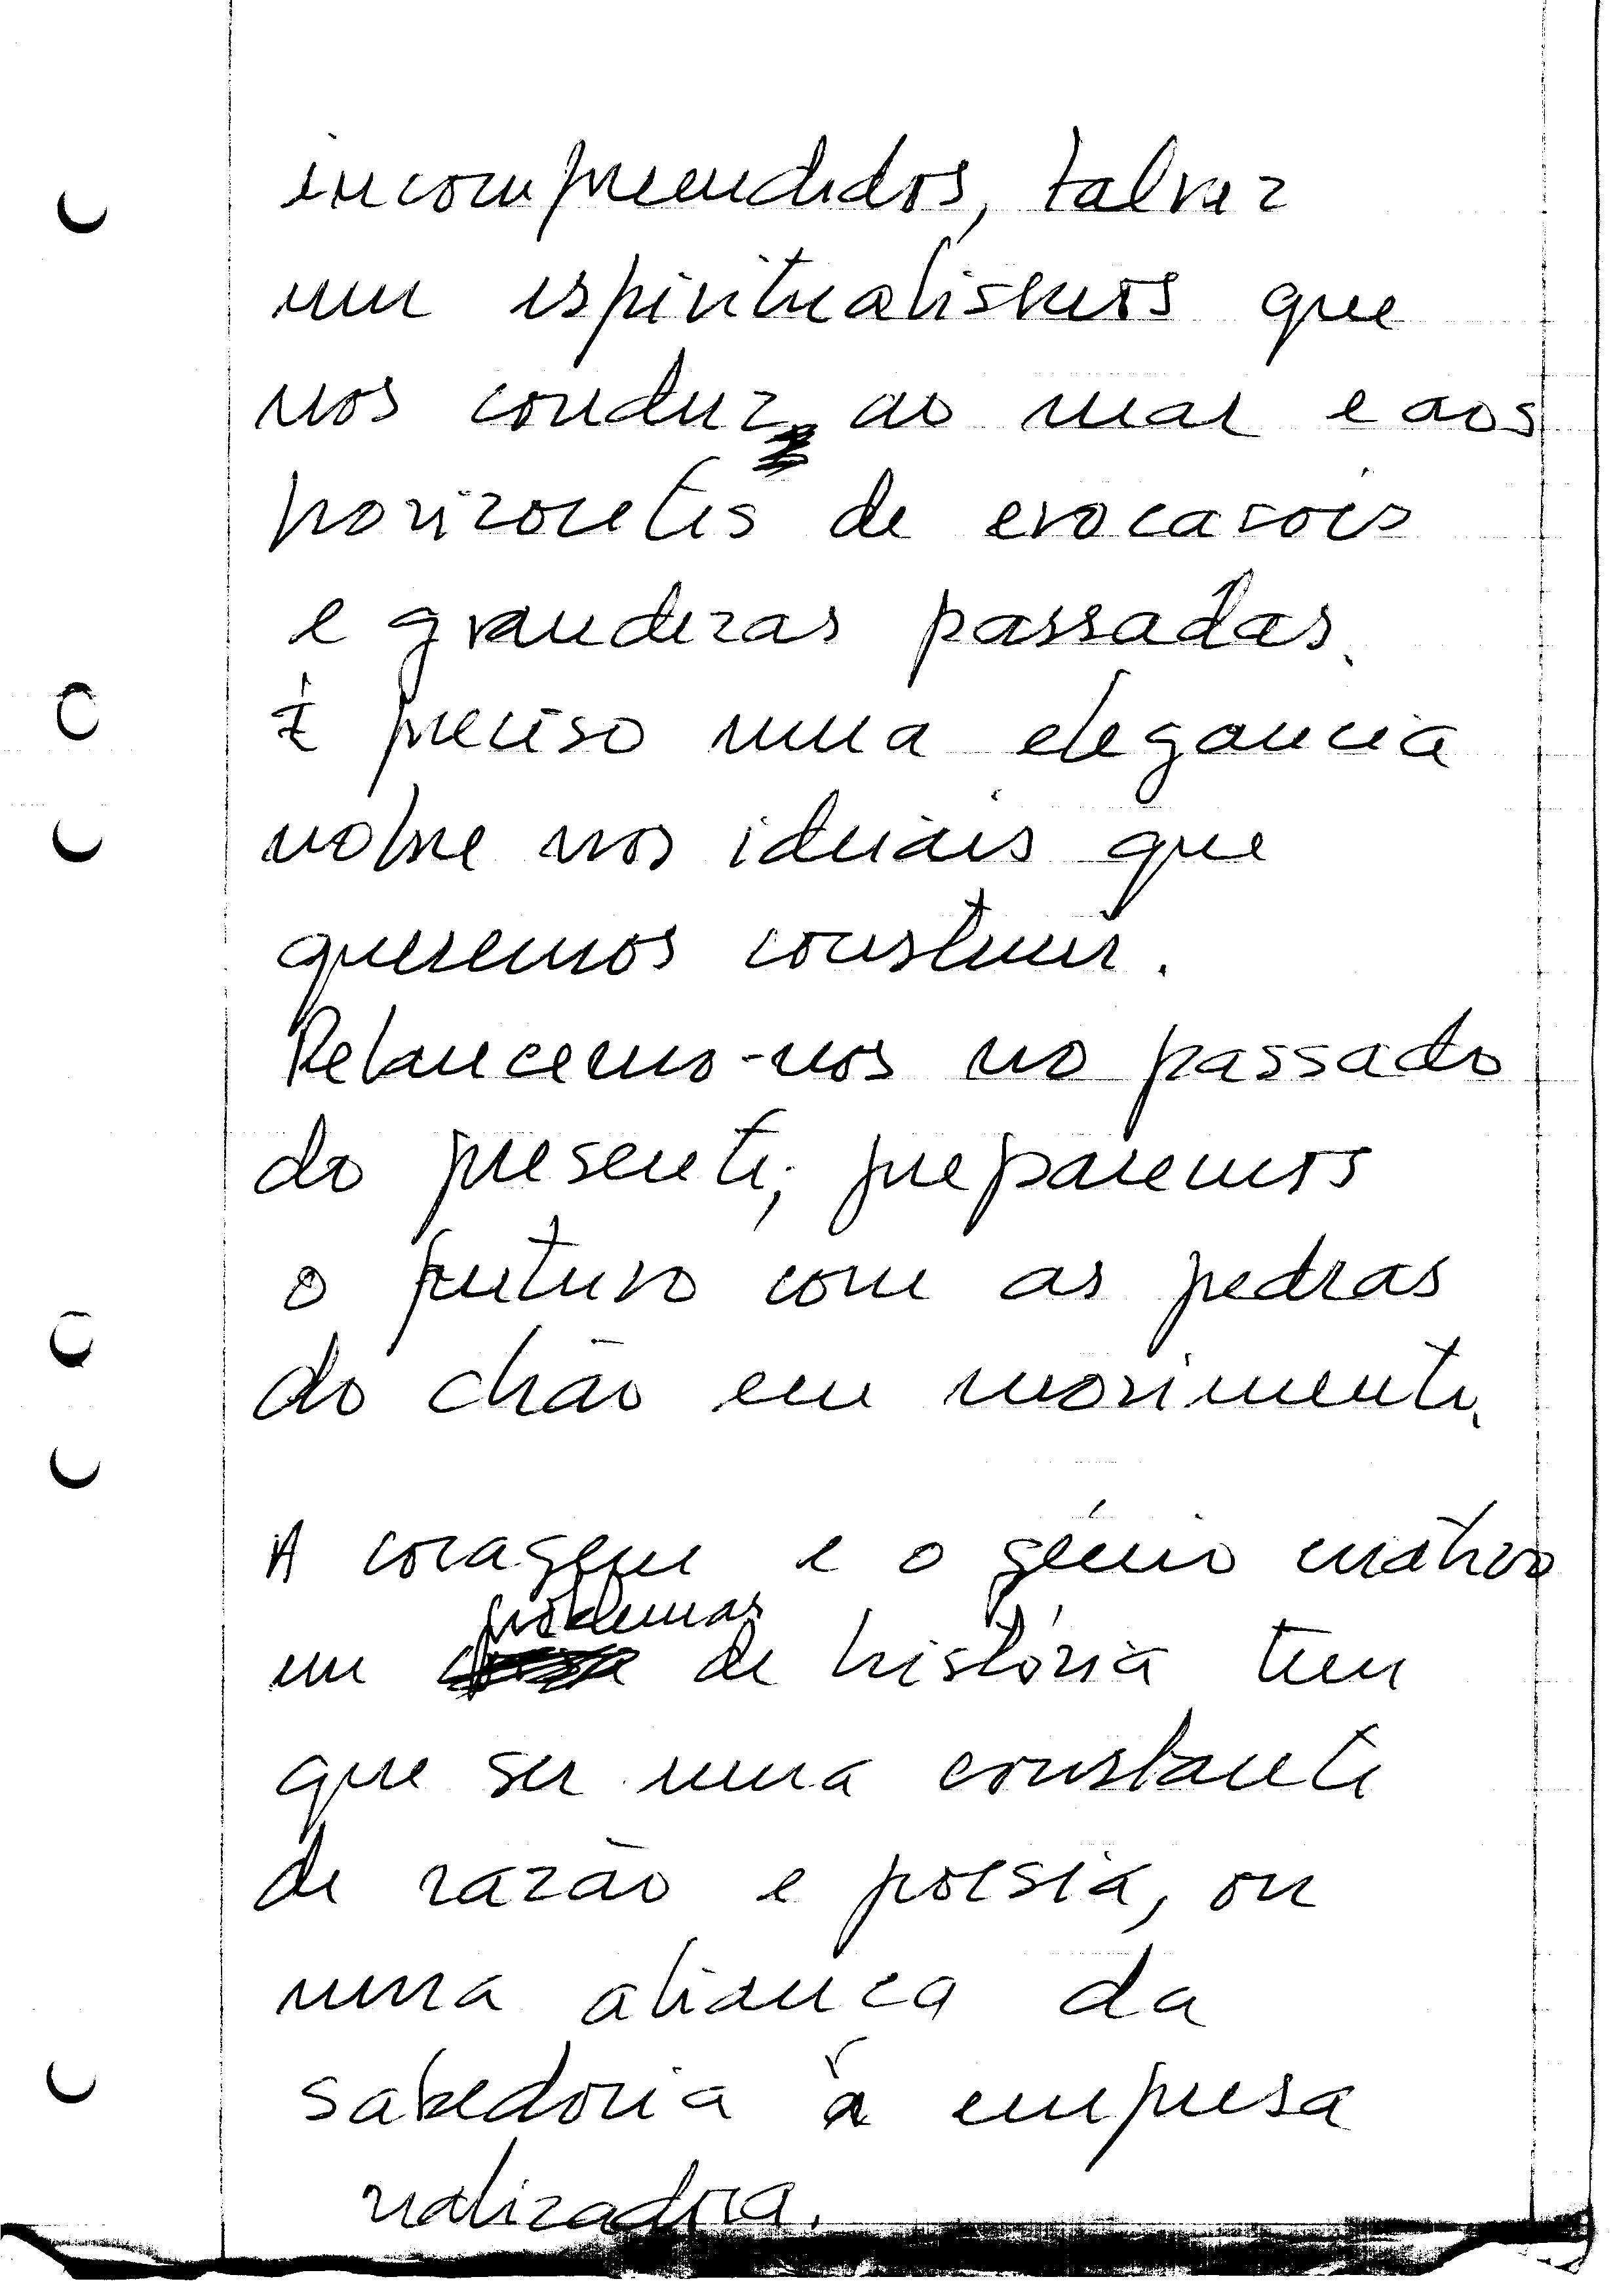 incompreendidos, talvez
um espiritualismos que
nos conduz, ao mar e aos
horizontes de evocacois
e grandezas passadas.
É preciso uma elegancia
nobre nos ideiais que
queremos construir.
Relancemo-nos no passado
do presente; preparemos
o futuro com as pedras
do chão em movimento.
A coragem e o génio criativo
problemas
em de história tem
que ser uma constante
de razão e poesia, ou
uma aliança da
sabedoria à empresa
realizadora.